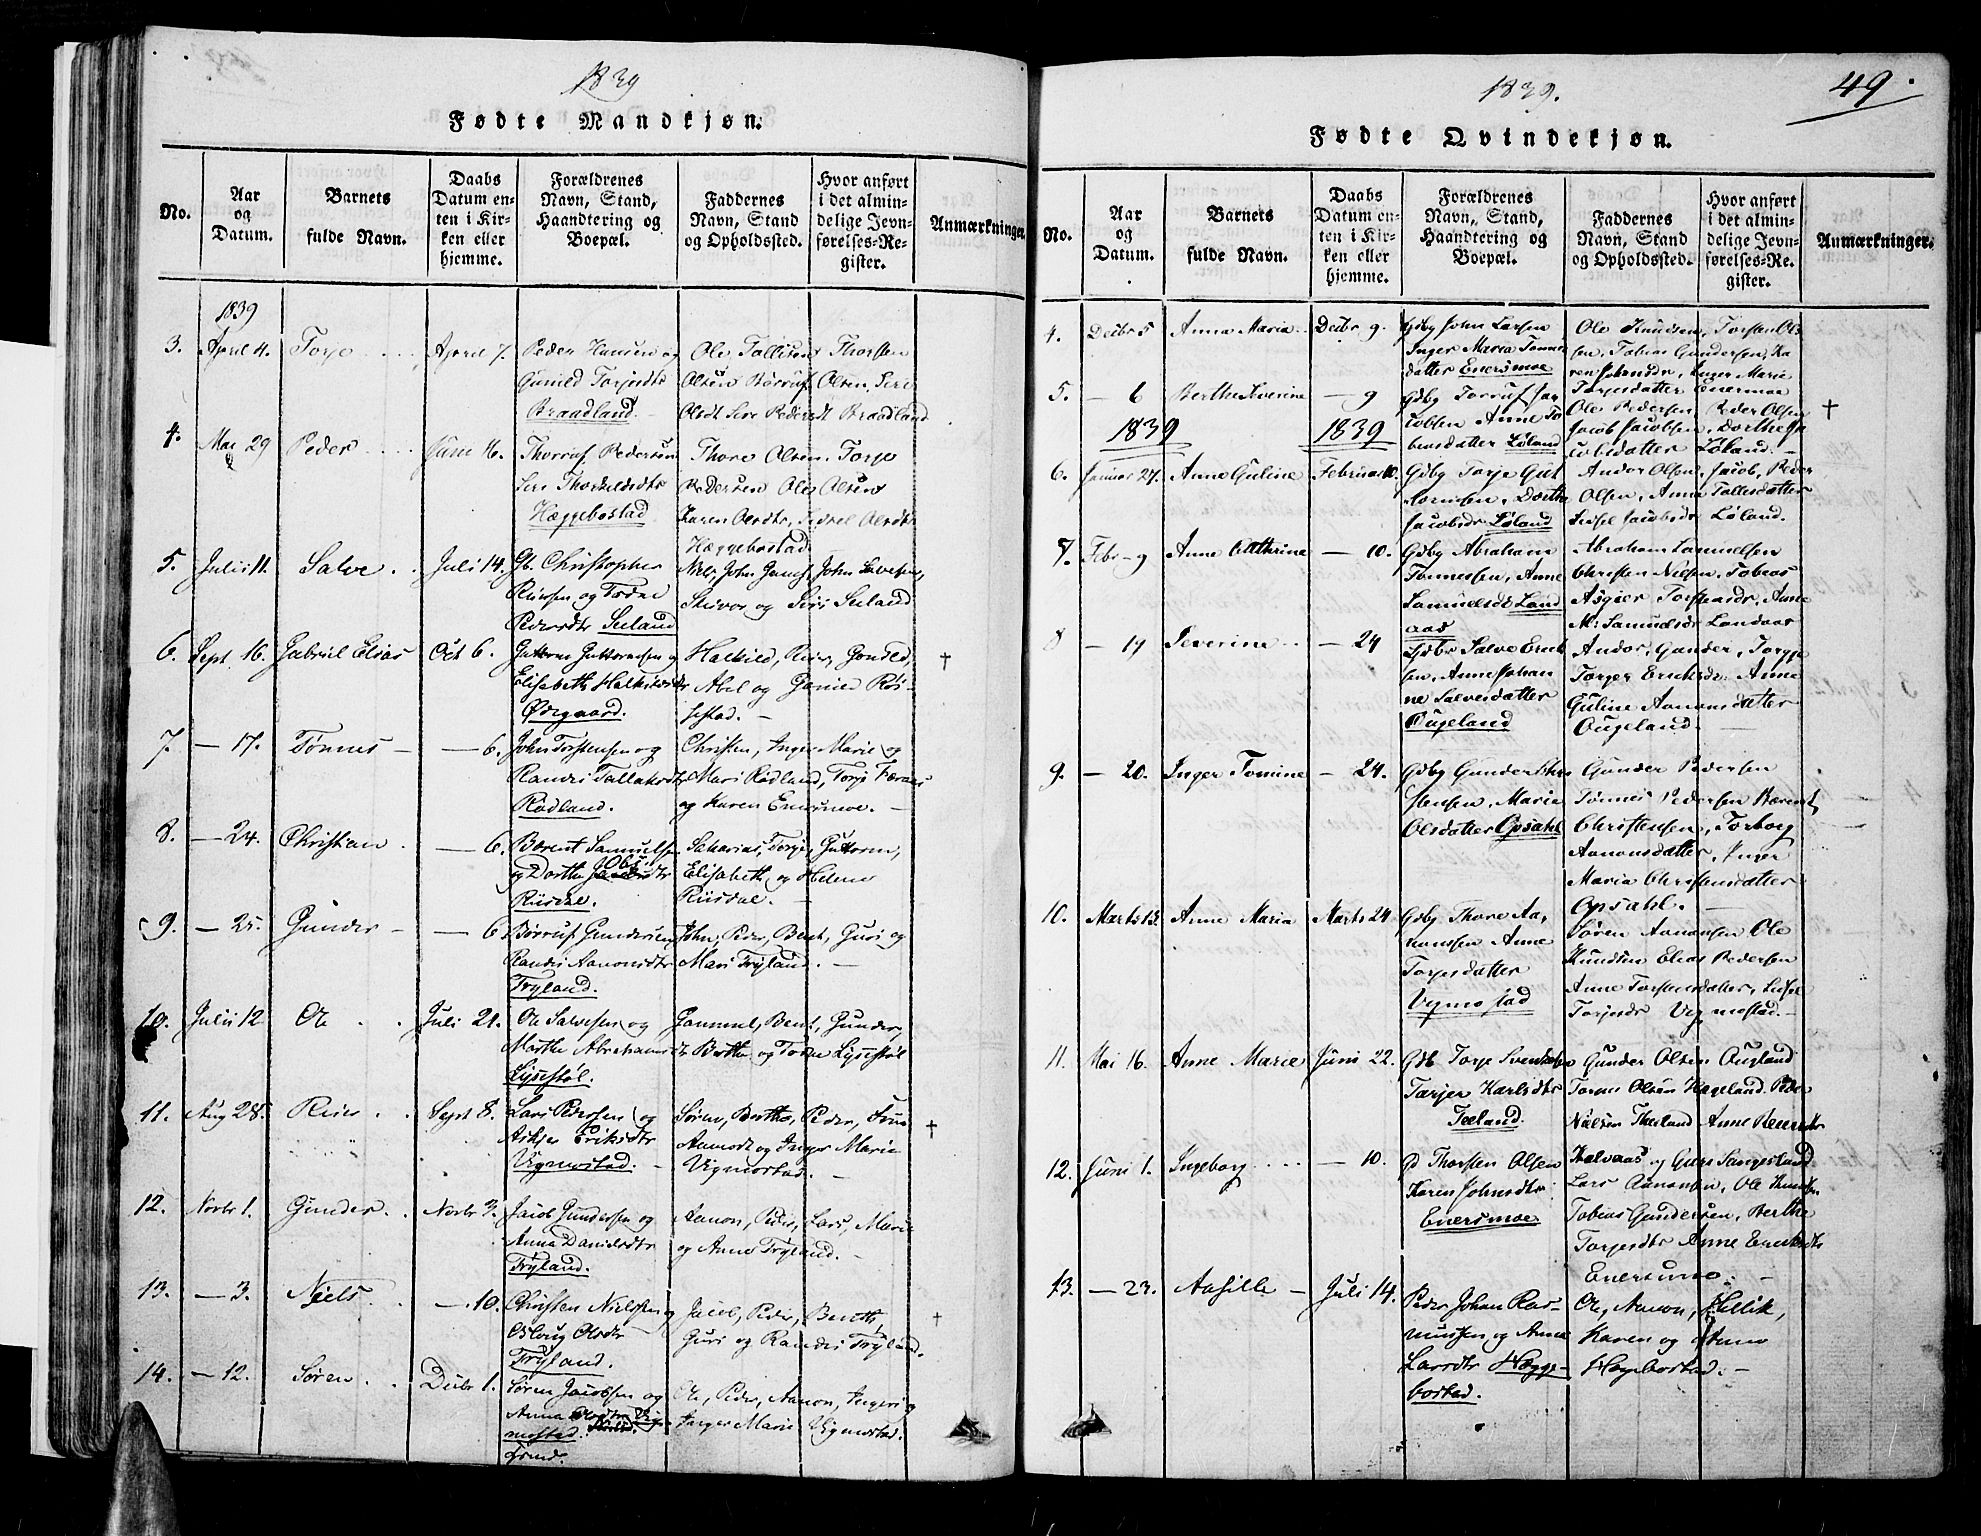 1839
Fødte Mandkjøn.
No.
Aar
og
Datum.
Barnets
fulde Navn.
Daabs
Datum en-
ten i Kir-
ken eller
hjemme.
Forældrenes
Navn, Stand,
Haandtering og
Boepæl.
Faddernes
Navn, Stand
og Opholdssted.
Hvor anført
i det almin-
delige Jevn-
førelses-Re-
gister.
Anmærkninger.
1839
3. April 4. Torje April 7. Peder Hansen og
Gunild Torjesdtr
Braadland
Ole Tallesen Thorsten
Olsen Børruf Olsen, Siri
Olsdt Sire Pedersdt Braadland
4. Mai 29 Peder Juni 16. Thorruf Pedersen
Siri Thorkildsdtr
Hæggebostad
Thore Olsen, Torje
Pedersen Ole Olsen
Karen Olsdtr, Sidsel Olsdtr
Hæggebostad
5. Julii 11. Salve Juli 14. Gb. Christopher
og Todne
Pedersdtr Seeland
Niels, John John Salvesen,
og Siri Seeland
6. Sept. 16. Gabriel Elias Oct 6. Guttorm Guttormsen og
Elisabeth Halkildsdtr
Ødegaard.
Halkild, Reier, Gunild,
Abel og Røi-
sestad. †
7. — 17. Tønnes — 6. John Torstensen og
Randi Tallaksdtr
Rødland.
Christen, Inger Marie og
Mari Rødland, Torje
og Karen Enersmoe.
8. — 24. Christian — 6. Berent Samuelsen
og Dorthe Jacobsdtr
Riisdal.
Sakarias, Torje, Guttorm,
Elisabeth og Helene
Riisdal.
9. — 25. Gunder — 6. Børruf Gundersen
Randi Aanonsdtr
Tryland.
John, Peder, Bent, Guri og
Mari Tryland.
10. Julii 12 Ole Juli 21. Ole Salvesen og
Marthe Abrahamsdtr
Lysestøl.
Gammel, Bent, Gunder,
Berthe og Todne Lysestøl
11. Aug 28. Reier Sept 8. Lars Pedersen og
Askjer Eriksdtr
Vigmostad.
Søren, Berthe, Peder,
Aamodt og Inger Marie
Vigmostad. †
12. Novbr 1. Gunder Novbr 3. Jacob Gundersen og
Anna Danielsdtr
Tryland.
Aanon, Peder, Lars, Marie
og Anne Tryland.
13. — 3. Niels — 10. Christen Nielssen og
Asloug Olsdtr
Tryland.
Jacob, Peder, Benth,
Guri og Randi Tryland. †
14. — 12. Søren Decbr 1. Søren Jacobsen og
Anna Olsdtr Vig-
mostad.
Ole, Peder, Aanon, Ingeri og
Inger Marie Vigmostad.
1839. 49
Fødte Qvindekjøn.
No.
Aar
og
Datum.
Barnets
fulde Navn.
Daabs
Datum en-
ten i Kir-
ken eller
hjemme.
Forældrenes
Navn, Stand,
Haandtering og
Boepæl.
Faddernes
Navn, Stand
og Opholdssted.
Hvor anført
i det almin-
delige Jevn-
førelses-Re-
gister.
Anmærkninger.
4. Decbr 5 Anna Maria Decbr 9. Gdbg John Larsen
Inger Maria Tønnes
datter Enersmoe
Ole Knudsen, Torsten Ol-
sen, Tobias Gundersen, Ka-
ren Johnsdtr, Inger Marie
Torjesdatter Enermoe
5. — 6 Berthe Severine — 9 Gdbg Torruf Ja-
cobsen Anne To-
biasdatter Løland
Ole Pedersen Peder Olsen
Jacob Jacobsen, Dorthe Ja-
cobsdatter Løland. †
1839 1839
6. Januar 27. Anne Guline Februar 10. Gdbg Torje Gut
tormsen, Dorthe
Jacobsdr Løland
Andor Olsen, Jacob, Peder
Olsen, Anne Tallesdatter
Sidsel Jacobsdr Løland.
7. Febr 9 Anne Cathrine — 10. Gdbg Abraham
Tønnessen, Anne
Samuelsdr Land
aas
Abraham Samuelsen
Christen Nilsen, Tobias
Asgier Torstensdr, Anne
M: Samuelsdr Landaas
8 — 19 Severine — 24 Gdbr Salve Erick
sen, Anne Johan
ne Salvesdatter
Ougeland
Andor, Gunder, Torgje
Torger Ericksdr: Anne
Guline Aanonsdatter
Ougeland.
9. — 20. Inger Tomine — 24. Gdbg Gunder Chri
stensen, Maria
Olsdatter Opsahl
Gunder Pedersen
Tønnes Pedersen Berent
Christensen, Torborg
Aanonsdatter, Inger
Maria Christensdatter
Opsahl.
10. Marts 13. Anne Maria Marts 24 Gdbg Thore Aa-
nonssen Anne
Torjesdatter
Vigmostad
Søren Aanonsen Ole
Knudsen Elias Pedersen
Anne Torstensdatter,
Torjesdr Vigmostad.
11. Mai 16. Anne Marie Juni 22. Gdb Torje Svendsen
Tarjer Karlsdtr
Teeland.
Gunder Olsen Ougland
Olsen Hageland, Peder
Nielsen Anne
og Guri
12. Juni 1. Ingeborg — 10. Gd Thorsten Olsen
Karen Johnsdtr
Enersmoe
Lars Aanonsen, Ole Knudsen
Tobias Gundersen, Berthe
Torjesdtr Anne Ericksdtr
Enersmo.
13. — 23. Aasille Juli 14. Peder Johan Ras-
mussen og Anne
Larsdtr Hægge-
bostad.
Ole, Aanon,
Karen og Anne
Hægebostad.